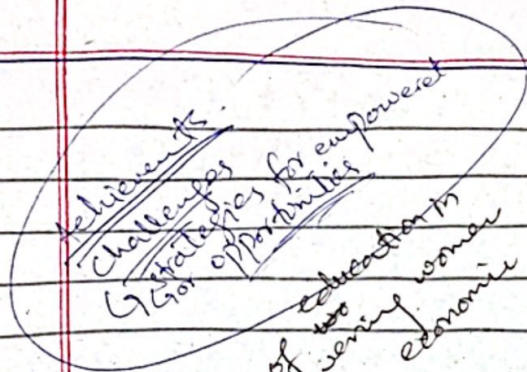 Achievements.
Challenges
↳ strategies for empowerment
↳ or opportunities
of education in
women
economic